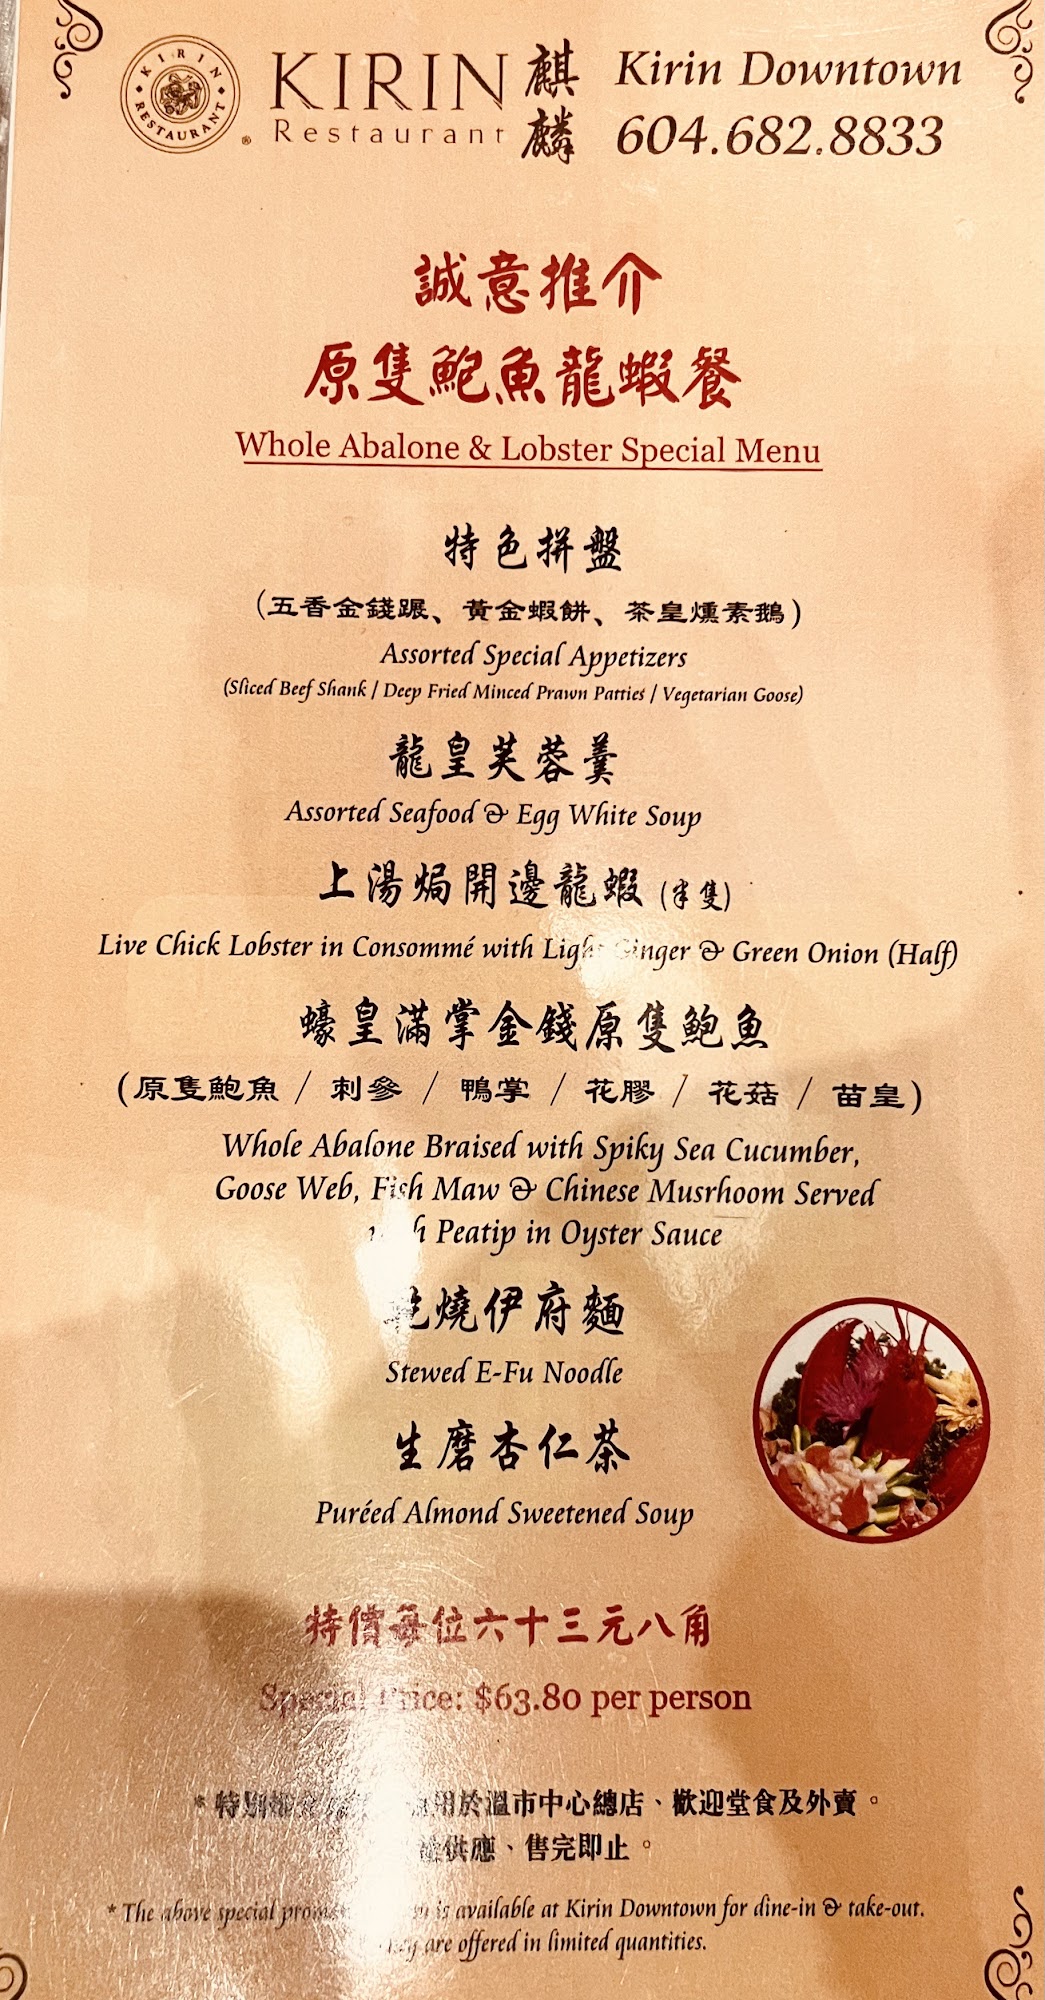 KIRIN RESTAURANT
KIRIN 麒麟
Restaurant
Kirin Downtown
604.682.8833
誠意推介
原隻鮑魚龍蝦餐
Whole Abalone & Lobster Special Menu
特色拼盤
(五香金錢𨃩、黃金蝦餅、茶皇燻素鵝)
Assorted Special Appetizers
(Sliced Beef Shank / Deep Fried Minced Prawn Patties / Vegetarian Goose)
龍皇芙蓉羹
Assorted Seafood & Egg White Soup
上湯焗開邊龍蝦 (半隻)
Live Chick Lobster in Consommé with Light Ginger & Green Onion (Half)
蠔皇滿掌金錢原隻鮑魚
(原隻鮑魚 / 刺參 / 鴨掌 / 花膠 / 花菇 / 苗皇)
Whole Abalone Braised with Spiky Sea Cucumber,
Goose Web, Fish Maw & Chinese Musrhoom Served
with Peatip in Oyster Sauce
乾燒伊府麵
Stewed E-Fu Noodle
生磨杏仁茶
Puréed Almond Sweetened Soup
特價每位六十三元八角
Special Price: $63.80 per person
* 特別 用於溫市中心總店、歡迎堂食及外賣。
供應、售完即止。
* The above special is available at Kirin Downtown for dine-in & take-out.
They are offered in limited quantities.